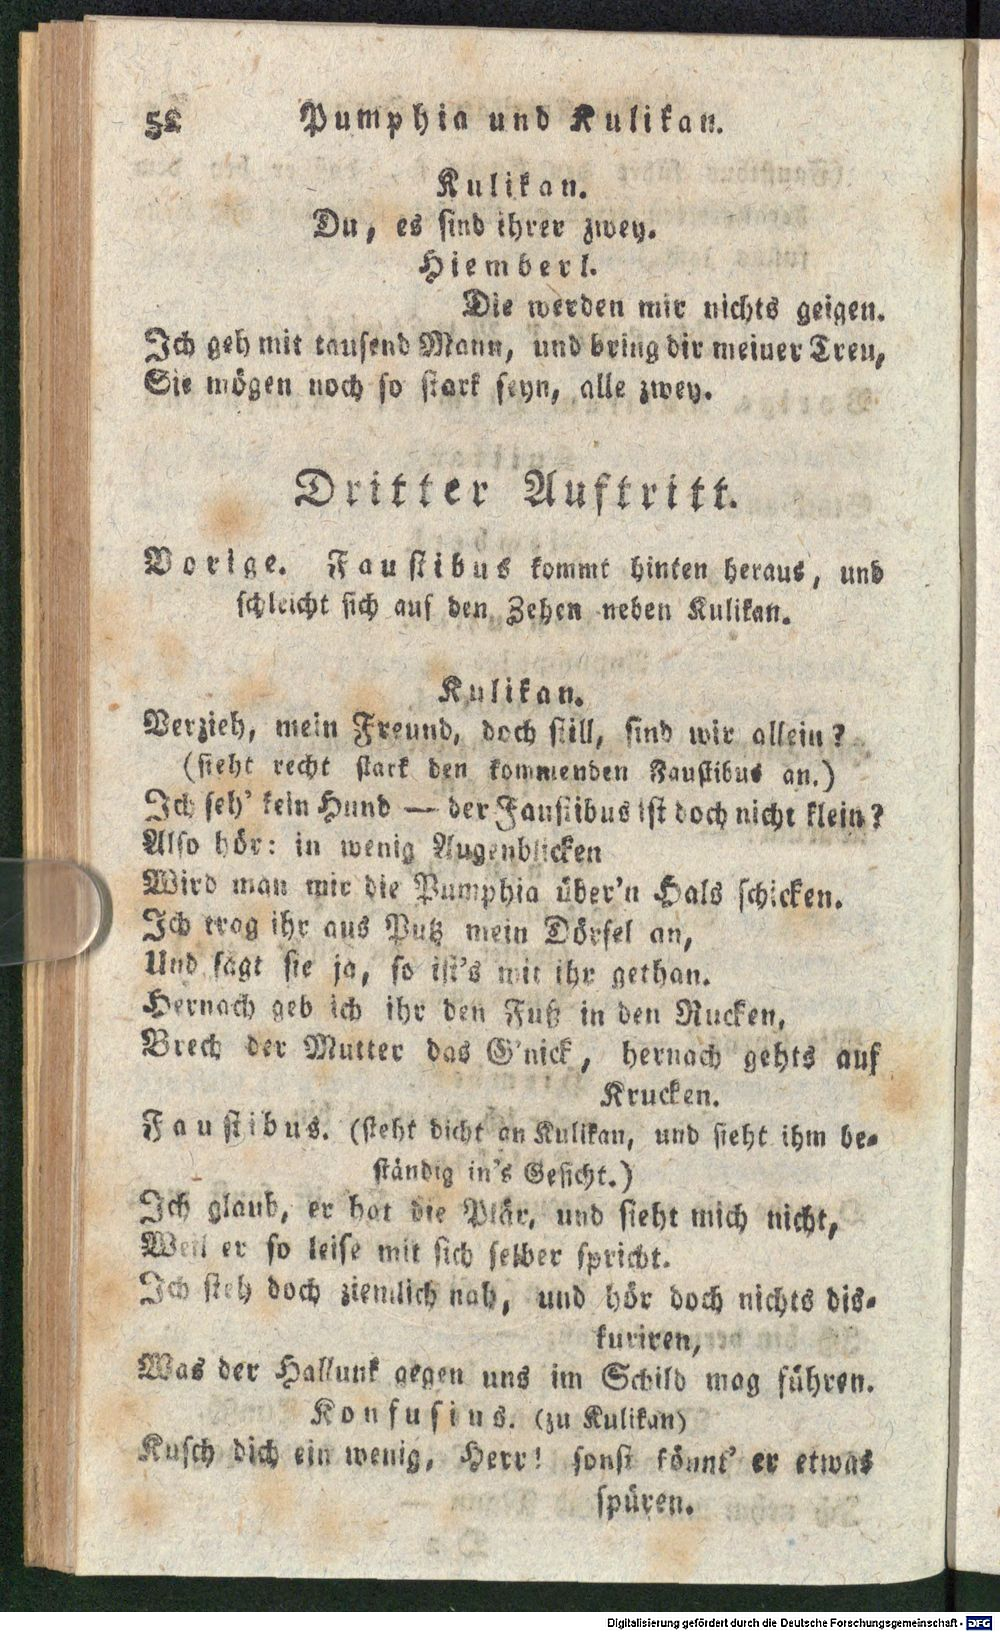 52 Pumphia und Kulikan.
Kulikan.
Du, es sind ihrer zwey.
Hiemberl.
Die werden mir nichts geigen.
Ich geh mit tausend Mann, und bring dir meiner Treu,
Sie mögen noch so stark seyn, alle zwey.
Dritter Auftritt.
Vorige. Faustibus kommt hinten heraus, und
schleicht sich auf den Zehen neben Kulikan.
Kulikan.
Verzieh, mein Freund, doch still, sind wir allein?
(sieht recht stark den kommenden Faustibus an.)
Ich seh' kein Hund — der Faustibus ist doch nicht klein?
Also hör: in wenig Augenblicken
Wird man mir die Pumphia über'n Hals schicken.
Ich trag ihr aus Putz mein Dörfel an,
Und sagt sie ja, so ist's mit ihr gethan.
Hernach geb ich ihr den Fuß in den Rucken,
Brech der Mutter das G'nick, hernach gehts auf
Krucken.
Faustibus. (steht dicht an Kulikan, und sieht ihm be-
ständig in's Gesicht.)
Ich glaub, er hat die Plär, und sieht mich nicht,
Weil er so leise mit sich selber spricht.
Ich steh doch ziemlich nah, und hör doch nichts dis-
kuriren,
Was der Hallunk gegen uns im Schild mag führen.
Konfusius. (zu Kulikan)
Kusch dich ein wenig, Herr! sonst könnt' er etwas
spüren.
Digitalisierung gefördert durch die Deutsche Forschungsgemeinschaft - DFG